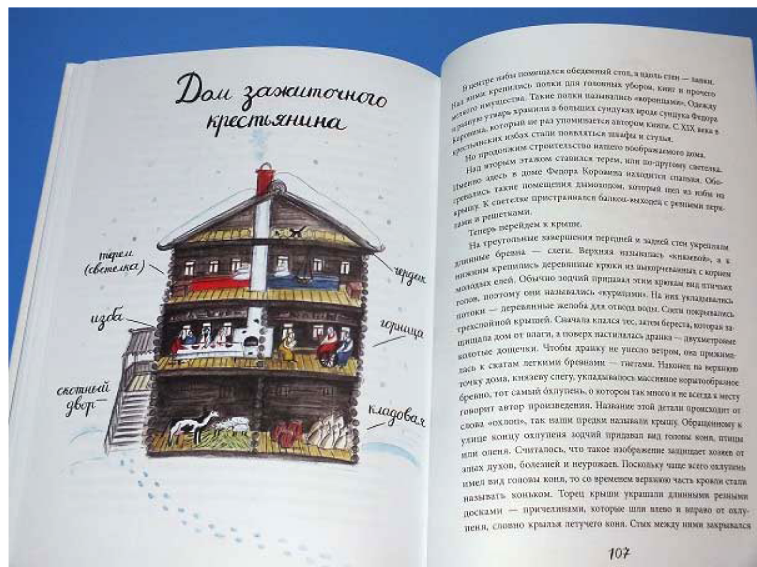 Дом зажиточного
крестьянина
терем
(светелка)
чердак
изба
горница
скотный
двор
кладовая
В центре избы помещался обеденный стол, а вдоль стен — лавки.
Над ними крепились полки для головных уборов, книг и прочего
мелкого имущества. Такие полки назывались «воронцами». Одежду
и разную утварь хранили в больших сундуках вроде сундука Федора
Коровина, который не раз упоминается автором книги. С XIX века в
крестьянских избах стали появляться шкафы и стулья.
Но продолжим строительство нашего воображаемого дома.
Над вторым этажом ставился терем, или по-другому светелка.
Именно здесь в доме Федора Коровина находится спальня. Обо-
гревались такие помещения дымоходом, который шел из избы на
крышу. К светелке пристраивался балкон-выходец с резными пери-
лами и решетками.
Теперь перейдем к крыше.
На треугольные завершения передней и задней стен укрепляли
длинные бревна — слеги. Верхняя называлась «князевой», а к
нижним крепились деревянные крюки из выкорчеванных с корнем
молодых елей. Обычно зодчий придавал этим крюкам вид птичьих
голов, поэтому они назывались «курицами». На них укладывались
потоки — деревянные желоба для отвода воды. Слеги покрывались
трехслойной крышей. Сначала клался тес, затем береста, которая за-
щищала дом от влаги, а поверх настилалась дранка — двухметровые
колотые дощечки. Чтобы дранку не унесло ветром, она прижима-
лась к скатам легкими бревнами — гнетами. Наконец на верхнюю
точку дома, князеву слегу, укладывалось массивное корытообразное
бревно, тот самый охлупень, о котором так много и не всегда к месту
говорит автор произведения. Название этой детали происходит от
слова «охлоп», так наши предки называли крышу. Обращенному к
улице концу охлупеня зодчий придавал вид головы коня, птицы
или оленя. Считалось, что такое изображение защищает хозяев от
злых духов, болезней и неурожаев. Поскольку чаще всего охлупень
имел вид головы коня, то со временем верхнюю часть кровли стали
называть коньком. Торец крыши украшали длинными резными
досками — причелинами, которые шли влево и вправо от охлу-
пеня, словно крылья летучего коня. Стык между ними закрывался
107